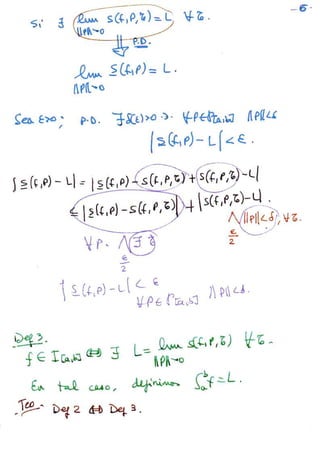 -6-
Si ∃ lim S(f,P,ζ) = L ∀ ζ.
‖P‖→0
⇓ P.D.
lim S(f,P) = L.
‖P‖→0
Sea ε>0; P.D. ∃ δ(ε)>0 ∋. ∀P∈℘[a,b] ‖P‖<δ
|S(f,P) - L| < ε.
|S(f,P) - L| = |S(f,P) - S(f,P,ζ) + S(f,P,ζ) - L|
≤ |S(f,P) - S(f,P,ζ)| + |S(f,P,ζ) - L|.
∀P. ∧ ∃ ζ
∧ ‖P‖<δ, ∀ζ.
ε/2
ε/2
|S(f,P) - L| < ε
∀P∈℘[a,b] ‖P‖<δ.
Def 3.
f ∈ I[a,b] ⇔ ∃ L = lim S(f,P,ζ) ∀ζ.
‖P‖→0
En tal caso, definimos ∫ₐᵇ f = L.
Teo. Def 2 ⇔ Def 3.